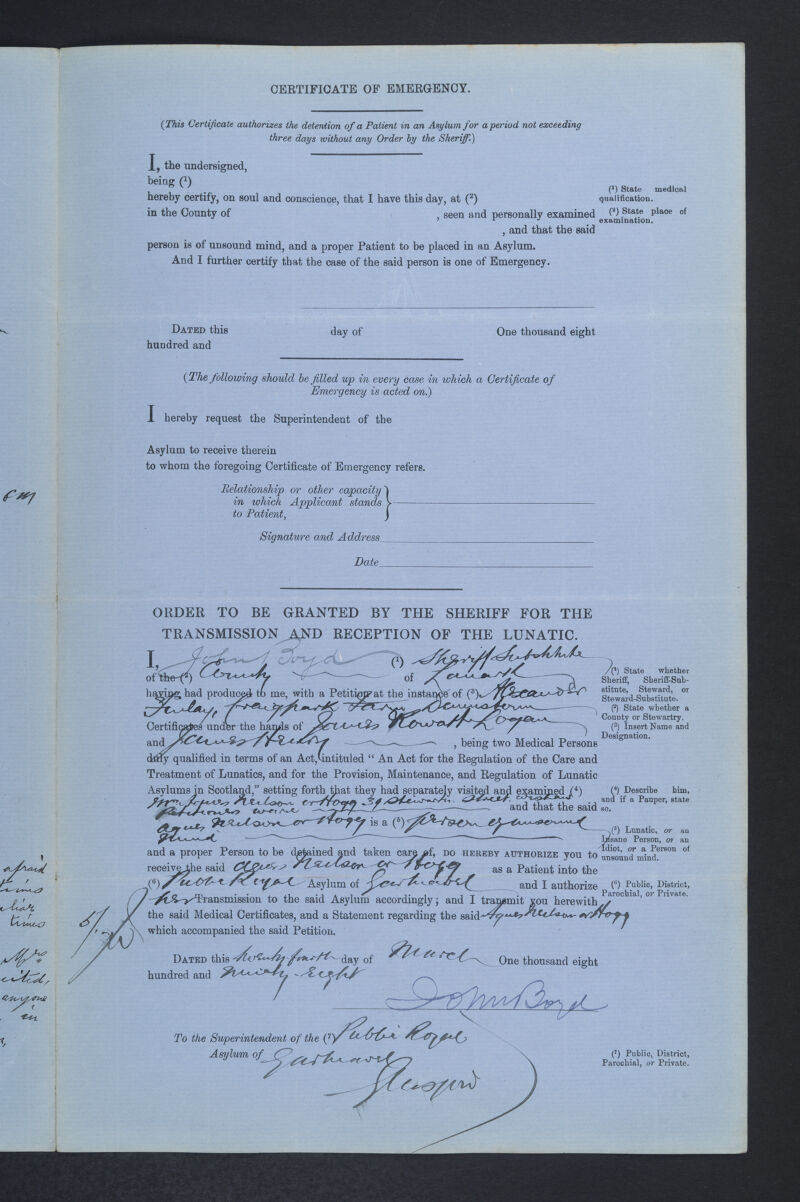 CERTIFICATE OF EMERGENCY.
(This Certificate authorizes the detention of a Patient in an Asylum for a period not exceeding
three days without any Order by the Sheriff.)
I, the undersigned,
being (¹)
hereby certify, on soul and conscience, that I have this day, at (²)
(¹) State medical
qualification.
in the County of , seen and personally examined
(²) State place of
examination.
, and that the said
person is of unsound mind, and a proper Patient to be placed in an Asylum.
And I further certify that the case of the said person is one of Emergency.
DATED this day of One thousand eight
hundred and
(The following should be filled up in every case in which a Certificate of
Emergency is acted on.)
I hereby request the Superintendent of the
Asylum to receive therein
to whom the foregoing Certificate of Emergency refers.
Relationship or other capacity
in which Applicant stands
to Patient,
Signature and Address
Date
ORDER TO BE GRANTED BY THE SHERIFF FOR THE
TRANSMISSION AND RECEPTION OF THE LUNATIC.
I, John Boyd (¹) Sheriff Substitute
of the (²) County of Lanark
having had produced to me, with a Petition at the instance of (³) Alexander
Finlay, Craigpark Farm
Certificates under the hands of James Rowatt Logan
and James Hendry , being two Medical Persons
duly qualified in terms of an Act, intituled " An Act for the Regulation of the Care and
Treatment of Lunatics, and for the Provision, Maintenance, and Regulation of Lunatic
Asylums in Scotland," setting forth that they had separately visited and examined (⁴)
Mrs Agnes Neilson or Hogg 39 Stewarton Street, Wishaw
and that the said
Agnes Neilson or Hogg is a (⁵) person of unsound
mind
and a proper Person to be detained and taken care of, DO HEREBY AUTHORIZE you to
receive the said Agnes Neilson or Hogg as a Patient into the
(⁶) Public Royal Asylum of Gartnavel and I authorize
her Transmission to the said Asylum accordingly; and I transmit you herewith
the said Medical Certificates, and a Statement regarding the said Agnes Neilson or Hogg
which accompanied the said Petition.
DATED this twenty fourth day of March One thousand eight
hundred and ninety-eight
John Boyd
To the Superintendent of the (⁷) Public Royal
Asylum of Gartnavel
Glasgow
(¹) State whether
Sheriff, Sheriff-Sub-
stitute, Steward, or
Steward-Substitute.
(²) State whether a
County or Stewartry.
(³) Insert Name and
Designation.
(⁴) Describe him,
and if a Pauper, state
so.
(⁵) Lunatic, or an
Insane Person, or an
Idiot, or a Person of
unsound mind.
(⁶) Public, District,
Parochial, or Private.
(⁷) Public, District,
Parochial, or Private.
afraid
times
Mrs
anyone
in